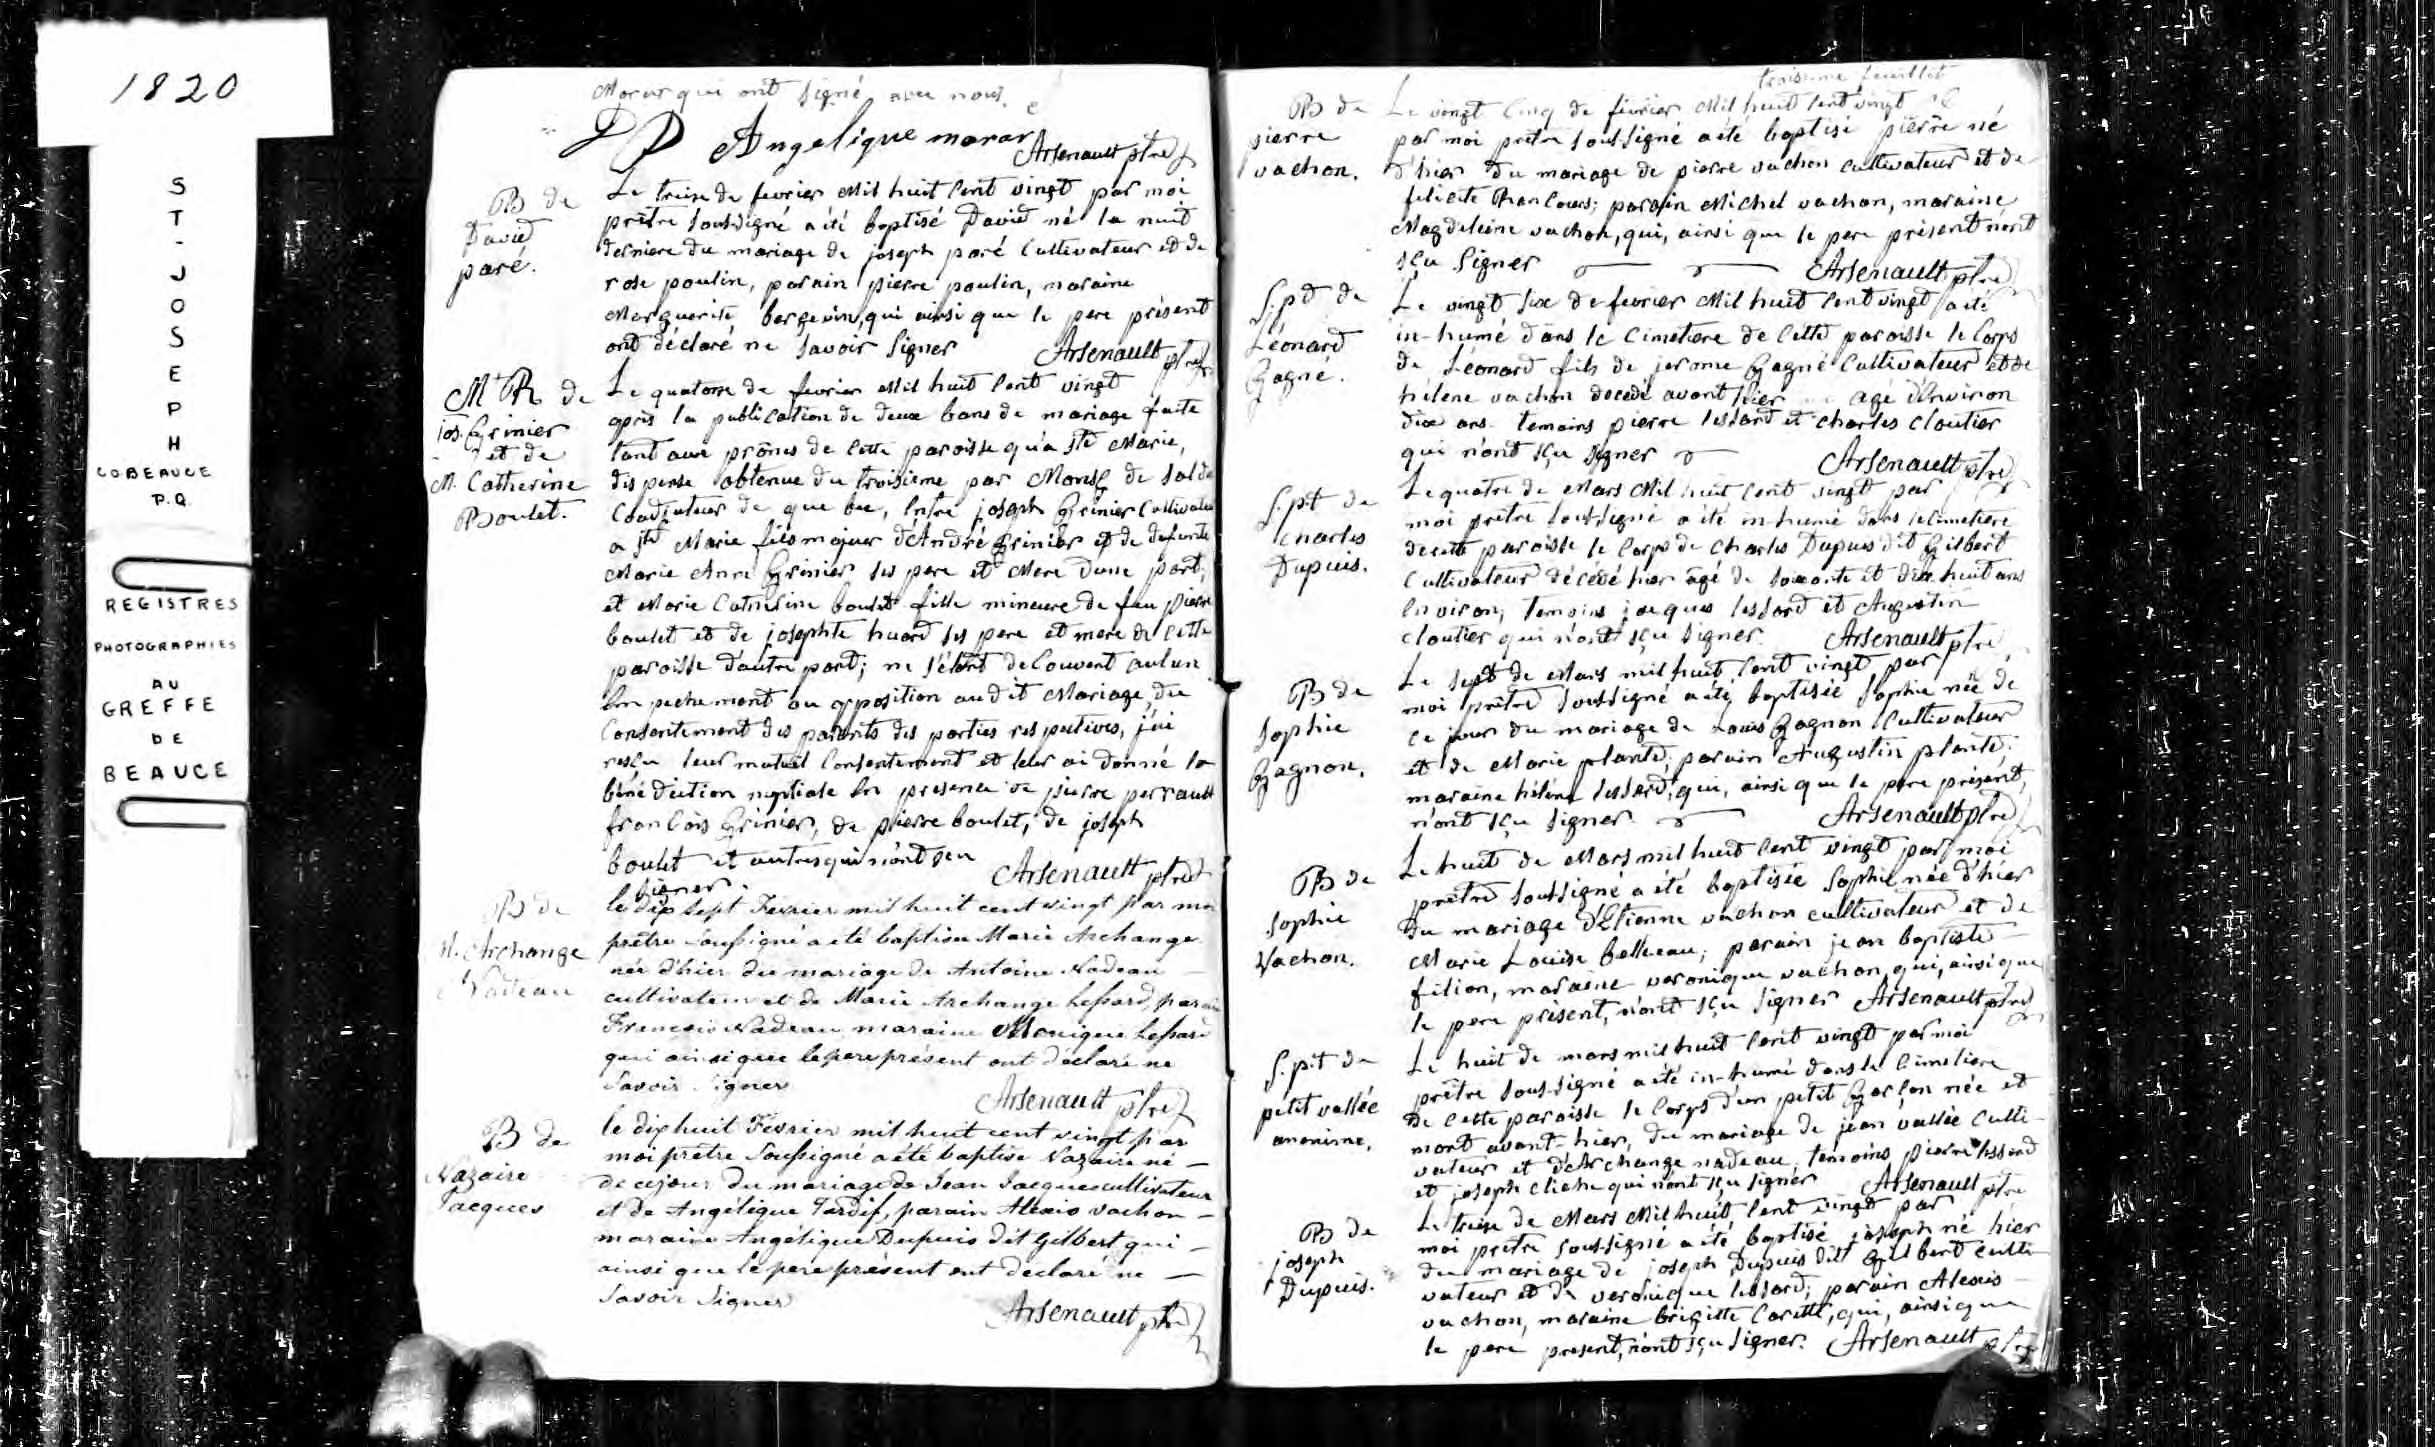 1820
ST-JOSEPH
CO BEAUCE
P.Q.
REGISTRES
PHOTOGRAPHIES
AU
GREFFE
DE
BEAUCE
qui ont signé avec nous
Angelique
Arsenault ptre
B de
David
paré.
Le treize de fevrier Mil huit Cent vingt par moi
prêtre Soussigné a été baptisé David né la nuit
derniere du mariage de joseph paré Cultivateur et de
rose poulin, parain pierre poulin, maraine
Marguerite bergevin, qui ainsi que le pere présent
ont déclaré ne Savoir Signer Arsenault ptre
M R de
jos. Grinier
et de
M. Catherine
Boulet.
Le quatorze de fevrier Mil huit Cent vingt
après la publication de deux bans de mariage faite
tant aux prônes de Cette paroisse qu'a Ste Marie,
dispense obtenue du troisieme par Monsg de
Coadjuteur de que bec, Entre joseph Grinier Cultivateur
a Ste Marie fils majeur d'André Grinier et de defunte
Marie Anne Grinier Ses pere et Mere dune part;
et Marie Catherine boulet fille mineure de feu pierre
boulet et de josephte huard Ses pere et mere de Cette
paroisse d'autre part; ne S'étant decouvert aucun
Em pechement ou opposition au dit Mariage, du
Consentement des parents des parties respectives, j'ai
resçu leur mutuel Consentement et leur ai donné la
béné diction nuptiale En presence de pierre perrault
françois Grinier, de pierre boulet, de joseph
boulet et autres qui n'ont sçu
Signer. Arsenault ptre
B de
M. Archange
Nadeau
le dix Sept Fevrier mil huit cent vingt par moi
prêtre Soussigné a été baptisée Marie Archange
née d'hier du mariage de Antoine Nadeau
cultivateur et de Marie Archange Lessard, parain
François Nadeau maraine Monique Lessard
qui ainsi que le pere présent ont déclaré ne
Savoir Signer
Arsenault ptre
B de
Nazaire
Jacques
le dix huit Fevrier mil huit cent vingt par
moi prêtre Soussigné a été baptisé Nazaire né
de ce jour du mariage de Jean Jacques cultivateur
et de Angélique Tardif, parain Alexis vachon
maraine Angélique Dupuis dit Gilbert qui
ainsi que le pere présent ont declaré ne
Savoir Signer
Arsenault ptre
troisieme feuillet
B de
pierre
vachon.
Le vingt Cinq de fevrier Mil huit Cent vingt
par moi prêtre Soussigné a été baptisé pierre né
d'hier du mariage de pierre vachon cultivateur et de
felicite; parain Michel vachon, maraine
Magdeleine vachon, qui, ainsi que le pere présent n'ont
sçu Signer Arsenault ptre
S.pt de
Léonard
Gagné.
Le vingt Six de fevrier Mil huit Cent vingt a été
in-humé dans le Cimetiere de Cette paroisse le Corps
de Léonard fils de jerome Gagné Cultivateur et de
hélene vachon decedé avant hier agé d'Environ
dix ans. temoins pierre lessard et charles cloutier
qui n'ont sçu signer Arsenault ptre
S.pt de
charles
Dupuis.
Le quatre de Mars Mil huit Cent vingt par
moi prêtre Soussigné a été in-humé dans le Cimetiere
de cette paroisse le Corps de Charles Dupuis dit Gilbert
Cultivateur décédé hier âgé de Soixante et dix huit ans
Environ; temoins jacques lessard et Augustin
cloutier qui n'ont sçu signer. Arsenault ptre
B de
Sophie
Gagnon.
Le Sept de Mars mil huit Cent vingt par
moi prêtre Soussigné a été baptisée Sophie née de
ce jour du mariage de Louis Gagnon Cultivateur
et de Marie plante; parain Augustin plante;
maraine hélene lessard, qui, ainsi que le pere présent,
n'ont sçu signer Arsenault ptre
B de
Sophie
Vachon.
Le huit de Mars mil huit Cent vingt par moi
prêtre Soussigné a été baptisée Sophie née d'hier
du mariage d'Etienne vachon cultivateur et de
Marie Louise; parain jean baptiste
filion, maraine veronique vachon, qui, ainsi que
le pere présent, n'ont sçu signer Arsenault ptre
S.pt de
petit vallée
anonime.
Le huit de mars mil huit Cent vingt par moi
prêtre Soussigné a été in-humé dans le Cimetiere
de Cette paroisse le Corps d'un petit Garçon née et
mort avant-hier, du mariage de jean vallée Culti-
vateur et d'Archange nadeau, temoins pierre lessard
et joseph cliche qui n'ont sçu signer Arsenault ptre
B de
joseph
Dupuis.
Le treize de Mars Mil huit Cent vingt par
moi prêtre Soussigné a été baptisé joseph né hier
du mariage de joseph Dupuis dit Gilbert culti-
vateur et de veronique lessard; parain Alexis
vachon, maraine brigitte Carette, qui, ainsi que
le pere present, n'ont sçu signer. Arsenault ptre